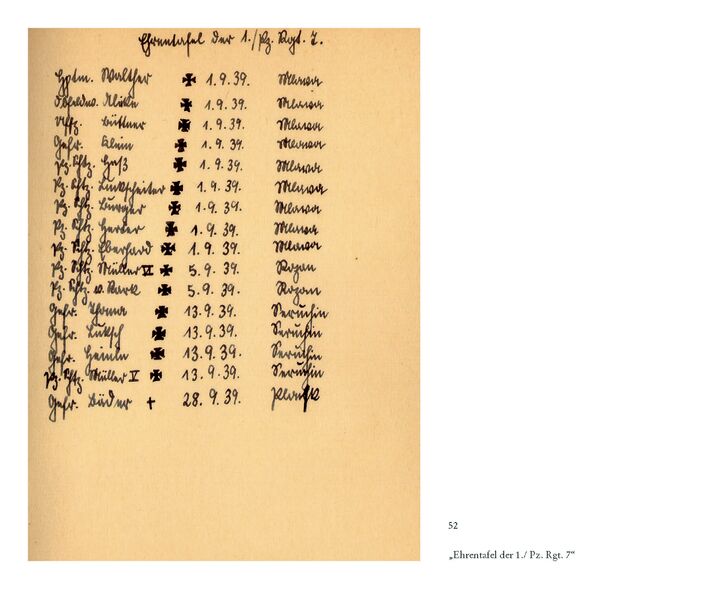 Ehrentafel der 1./Pz. Rgt. 7.
Hptm. Walther ✠ 1.9.39. Mlawa
✠ 1.9.39. Mlawa
Uffz. Büttner ✠ 1.9.39. Mlawa
Gefr. Klein ✠ 1.9.39. Mlawa
Pz. Schtz. Heß ✠ 1.9.39. Mlawa
Pz. Schtz. Linkscheiter ✠ 1.9.39. Mlawa
Pz. Schtz. Burger ✠ 1.9.39. Mlawa
Pz. Schtz. ✠ 1.9.39. Mlawa
Pz. Schtz. Eberhard ✠ 1.9.39. Mlawa
Pz. Schtz. Müller VI ✠ 5.9.39. Rozan
Pz. Schtz. ✠ 5.9.39. Rozan
Gefr. Thoma ✠ 13.9.39. Seruchin
Gefr. Luksch ✠ 13.9.39. Seruchin
Gefr. Heinle ✠ 13.9.39. Seruchin
Pz. Schtz. Müller V ✠ 13.9.39. Seruchin
Gefr. Bäder † 28.9.39.
52
„Ehrentafel der 1./ Pz. Rgt. 7“